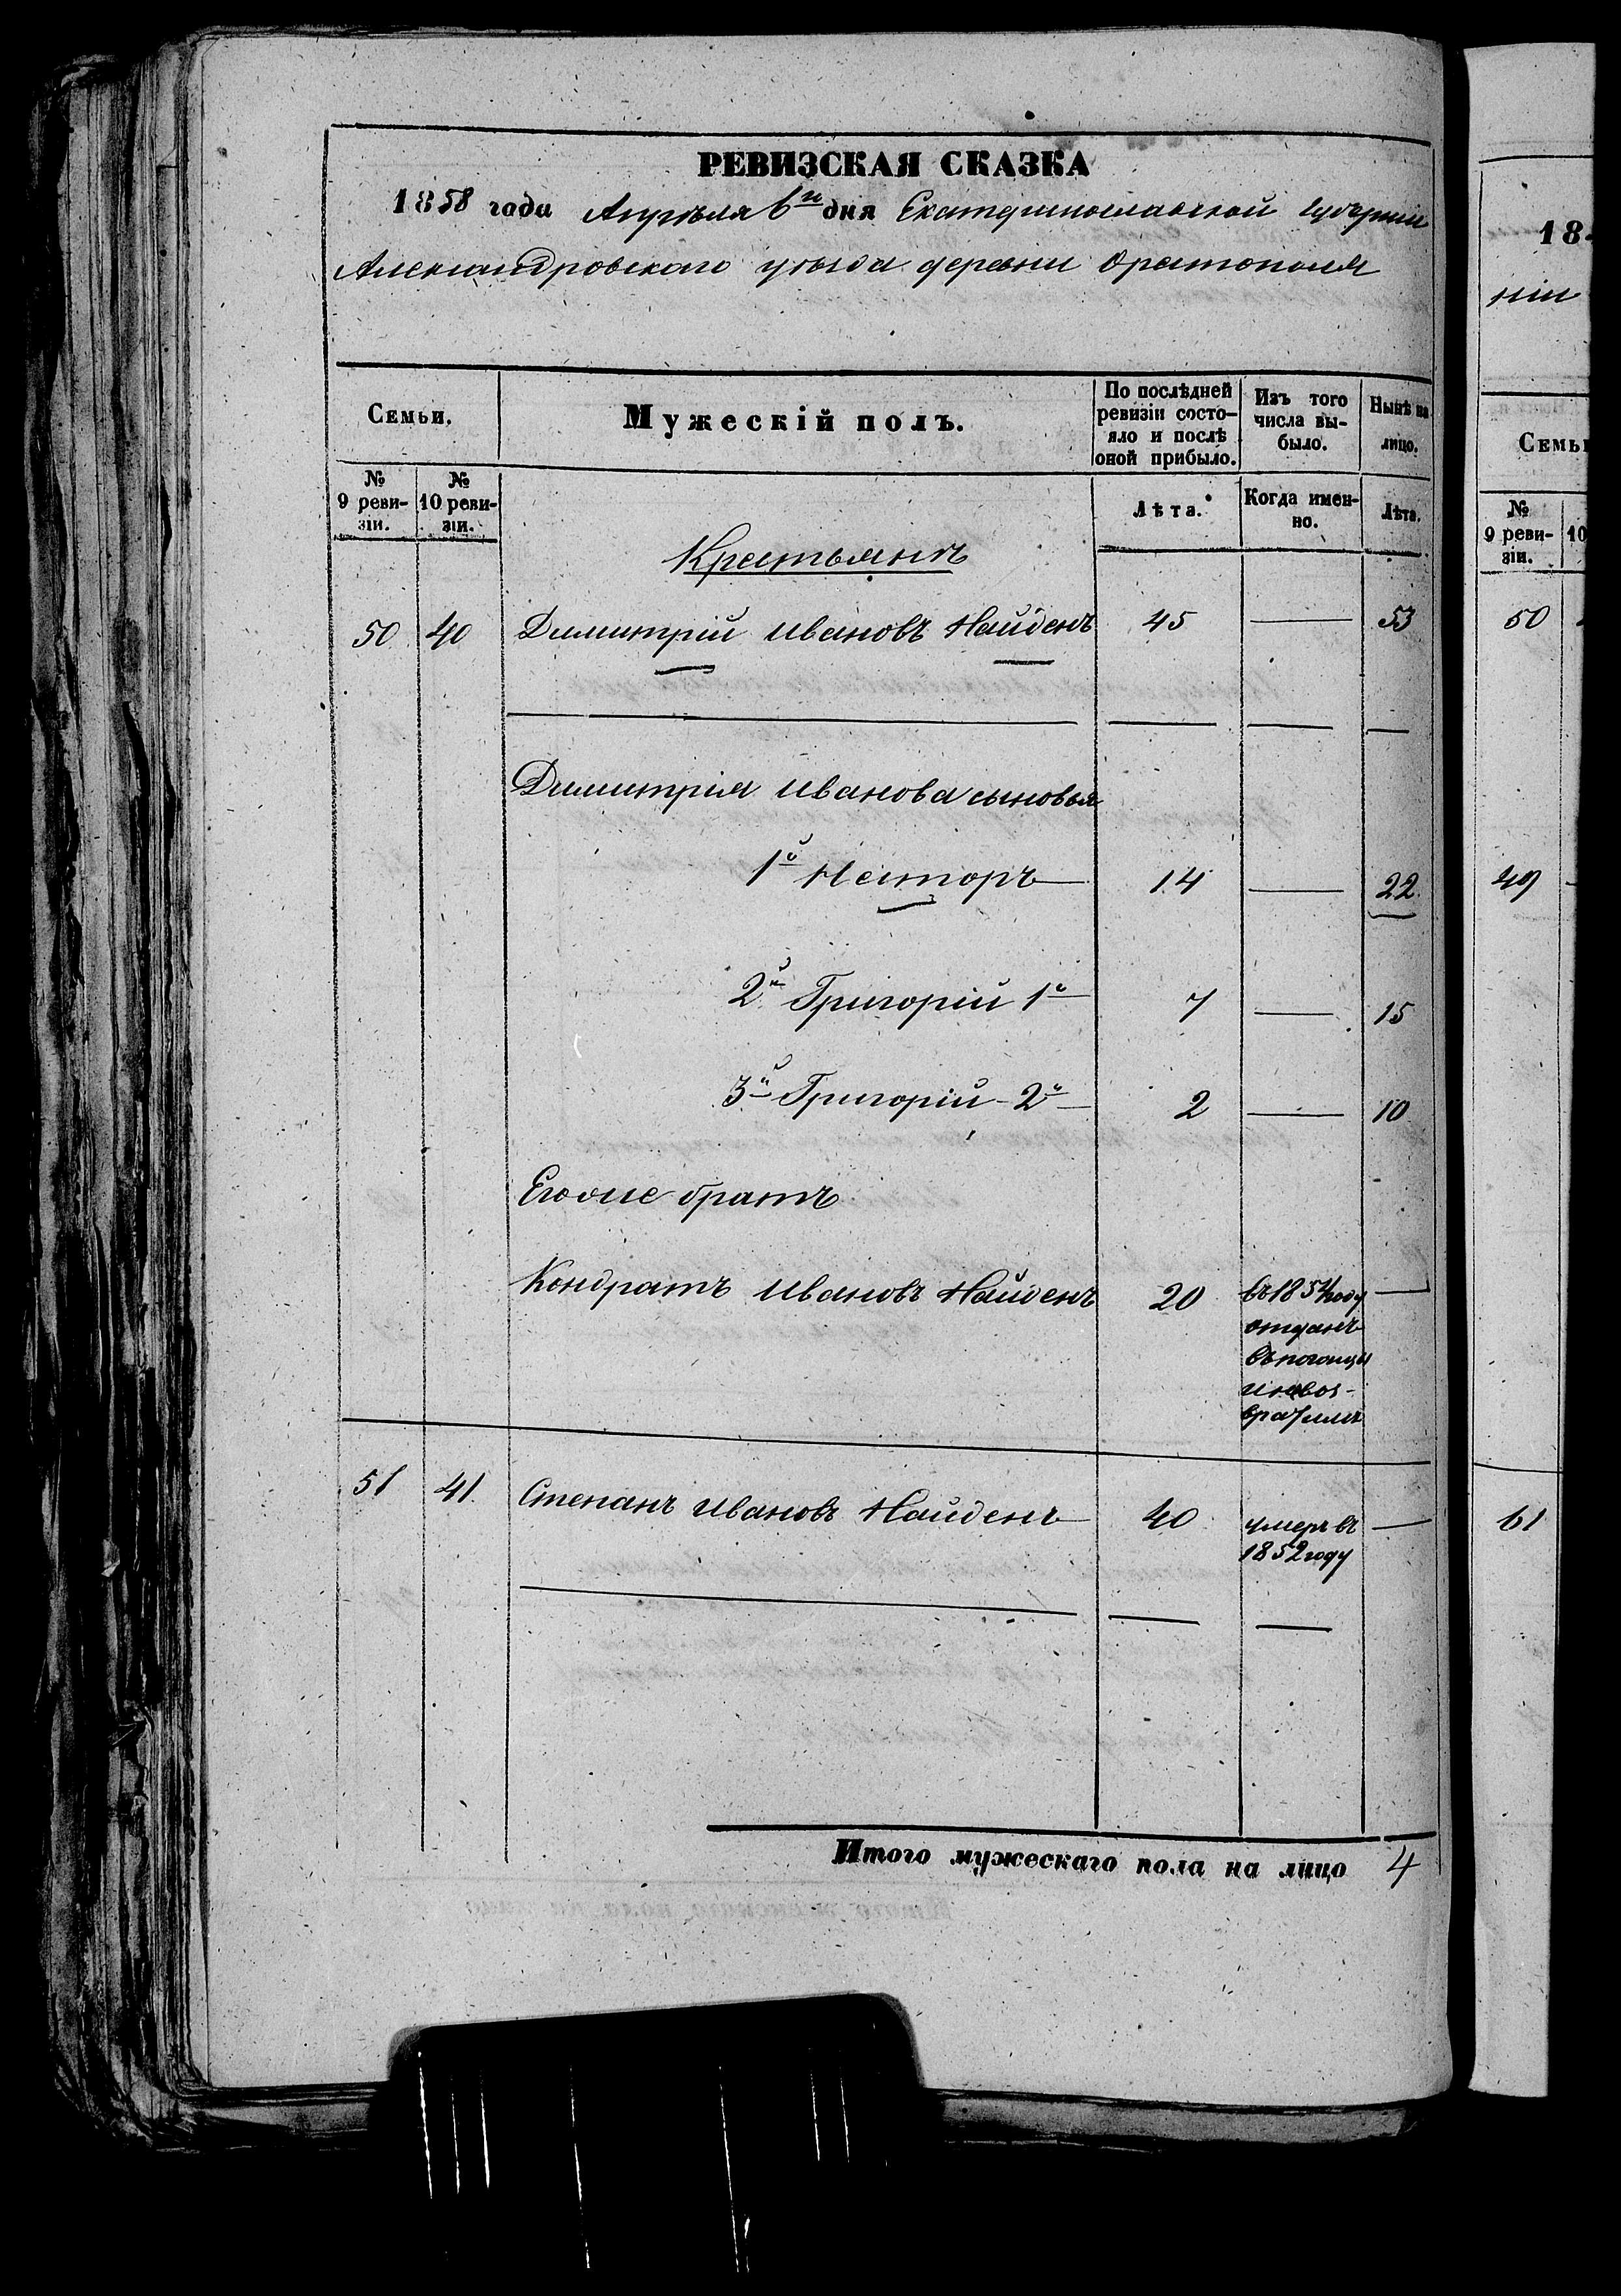 РЕВИЗСКАЯ СКАЗКА
1858 года Апрѣля 6го дня Екатеринославской губерніи
Александровскаго уѣзда деревни Орестополя
Семьи.
Мужескій полъ.
По послѣдней ревизіи состо-яло и послѣ оной прибыло.
Изъ того числа вы-было.
Нынѣ на лицо.
№ 9 реви-зіи.
№ 10 реви-зіи.
Лѣта.
Когда имен-но.
Лѣта.
Крестьянъ
50 40 Димитрій Ивановъ Найденъ 45 — 53
Димитрія Иванова сыновья
1й Несторъ 14 — 22
2й Григорій 1й 7 — 15
3й Григорій 2й 2 — 10
Его же братъ
Кондратъ Ивановъ Найденъ 20 въ 1854 году —
отданъ
въ погонцы
и невоз-
вратилъ
51 41. Степанъ Ивановъ Найденъ 40 умеръ въ —
1852 году
Итого мужескаго пола на лицо 4
18
ніи
Семьи
№ 9 реви-зіи.
10
50
49
61